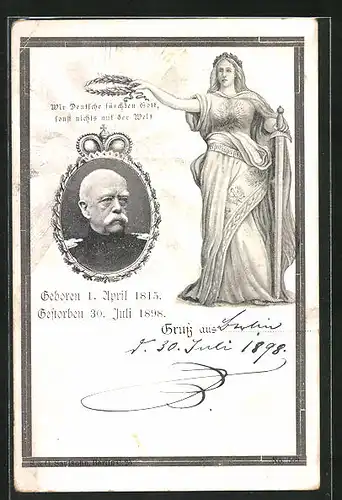 Wir Deutsche fürchten Gott,
sonst nichts auf der Welt
Geboren 1. April 1815.
Gestorben 30. Juli 1898.
Gruß aus Berlin
d. 30. Juli 1898.